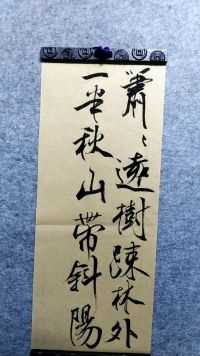 蕭〻遠樹踈林外
一半秋山帶斜陽